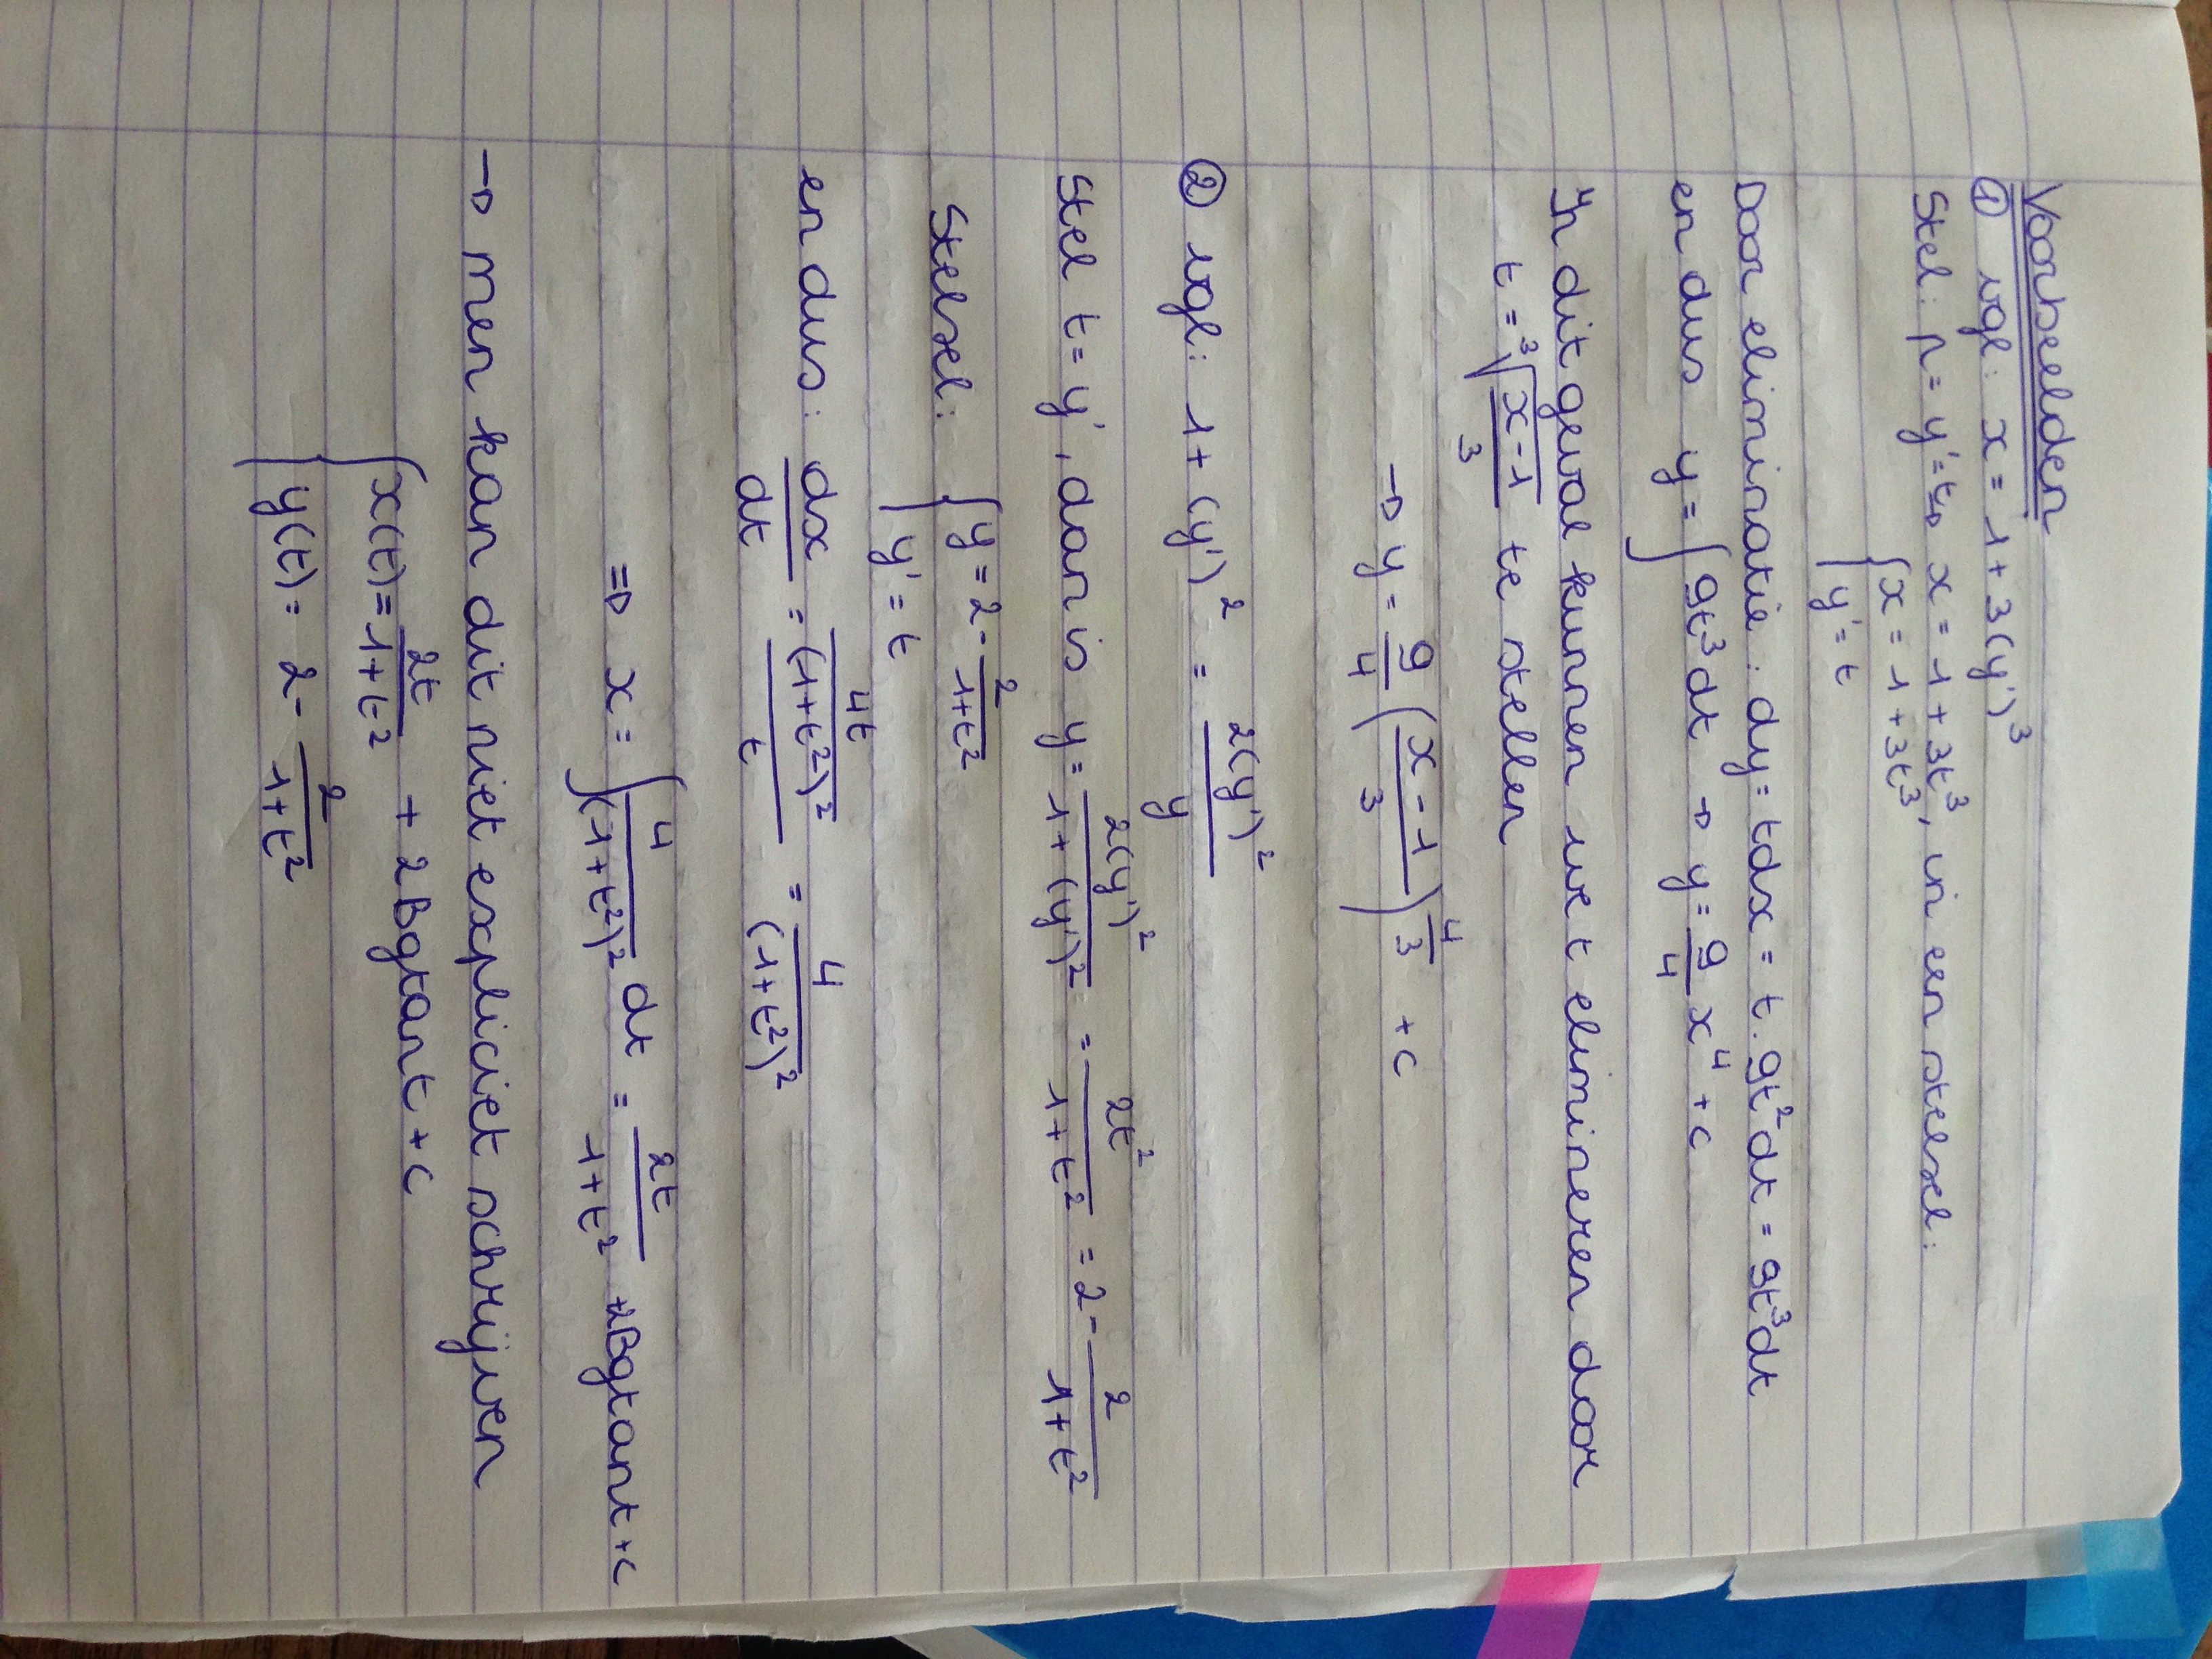 Voorbeelden
① vgl: x = 1 + 3(y')³
Stel: p = y' = t → x = 1 + 3t³, in een stelsel:
{ x = 1 + 3t³
{ y' = t
Door eliminatie: dy = tdx = t . 9t²dt = 9t³dt
en dus y = ∫ 9t³ dt → y = 9/4 x⁴ + c
In dit geval kunnen we t elimineren door
t = ³√((x-1)/3) te stellen
→ y = 9/4 ((x-1)/3)^(4/3) + c
② vgl: 1 + (y')² = 2(y')²/y
Stel t = y', dan is y = 2(y')²/(1+(y')²) = 2t²/(1+t²) = 2 - 2/(1+t²)
Stelsel: { y = 2 - 2/(1+t²)
{ y' = t
en dus: dx/dt = (4t/(1+t²)²)/t = 4/(1+t²)²
⇒ x = ∫ 4/(1+t²)² dt = 2t/(1+t²) + 2Bgtant + c
→ men kan dit niet expliciet schrijven
{ x(t) = 2t/(1+t²) + 2Bgtant + c
{ y(t) = 2 - 2/(1+t²)